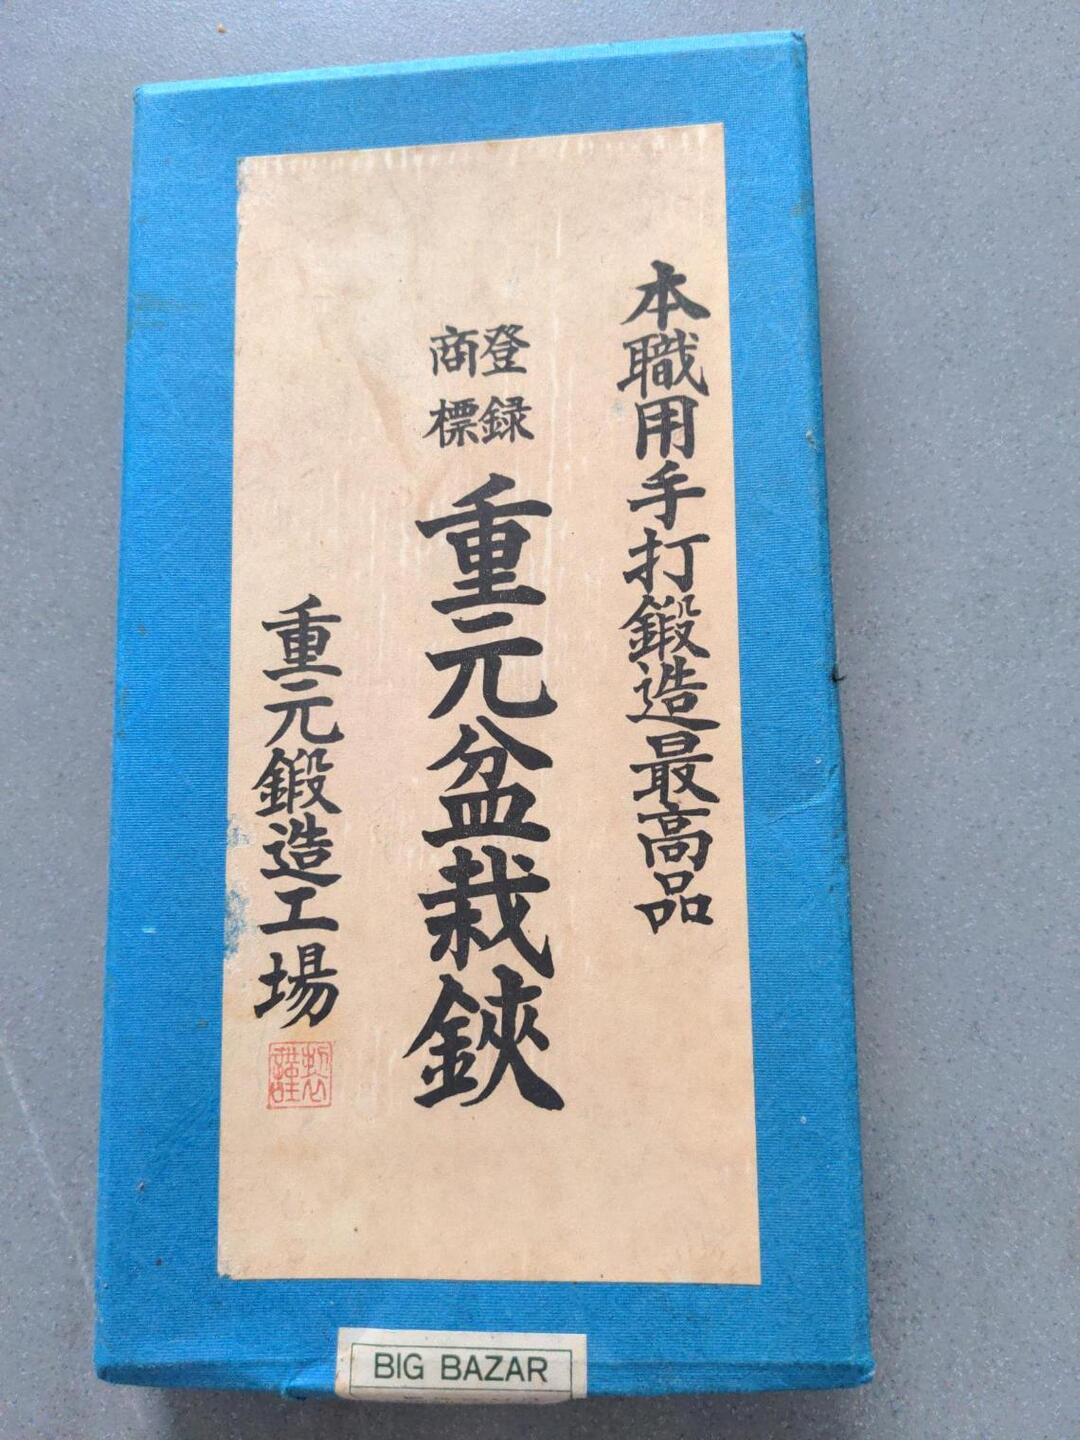 本職用手打鍛造最高品
登録
商標
重元盆栽鋏
重元鍛造工場
BIG BAZAR